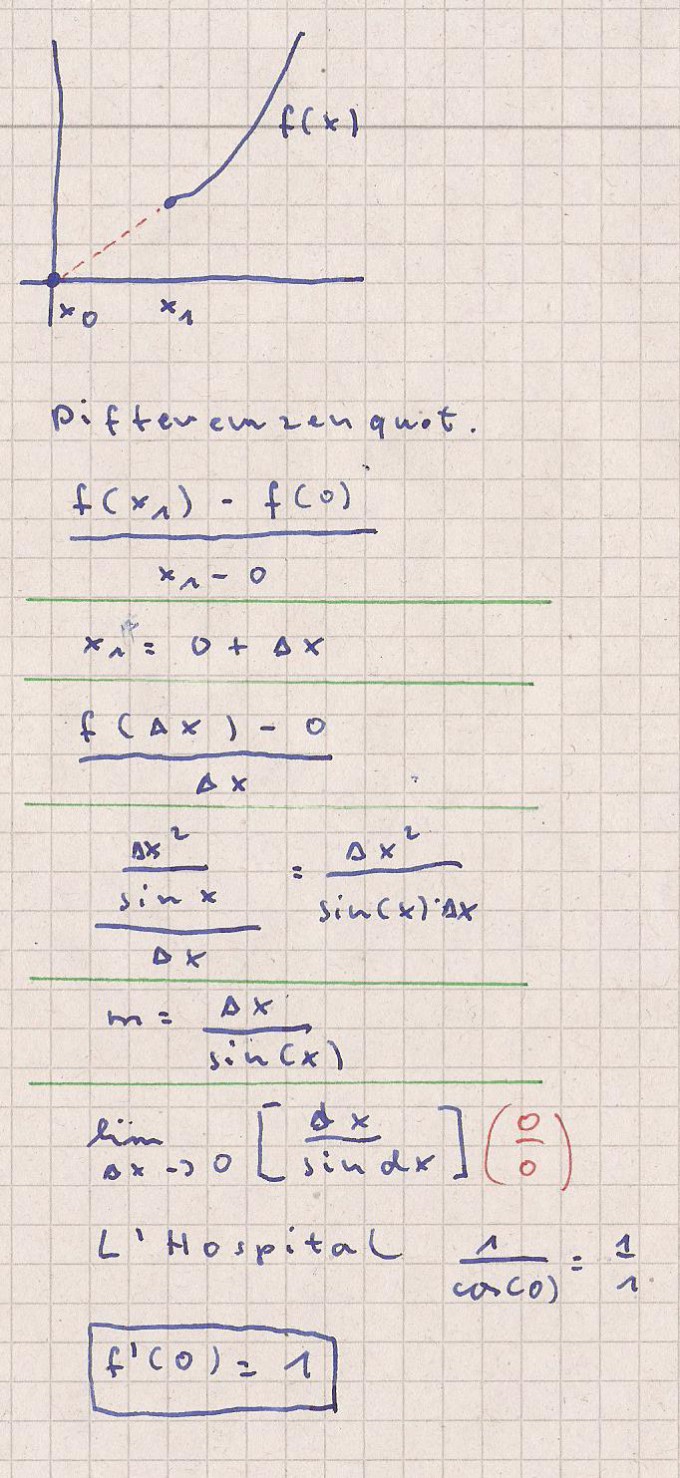 f(x)
x₀ x₁
Differenzenquot.
f(x₁) - f(0)
x₁ - 0
x₁ = 0 + Δx
f(Δx) - 0
Δx
Δx² / sin x / Δx = Δx² / sin(x)·Δx
m = Δx / sin(x)
lim Δx -> 0 [ dx / sin dx ] ( 0 / 0 )
L'Hospital 1 / cos(0) = 1 / 1
f'(0) = 1